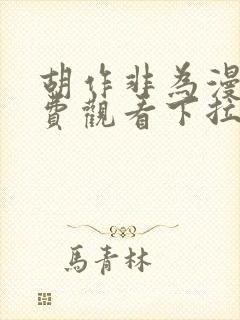 胡作非為漫
費觀看下拉
馬青林